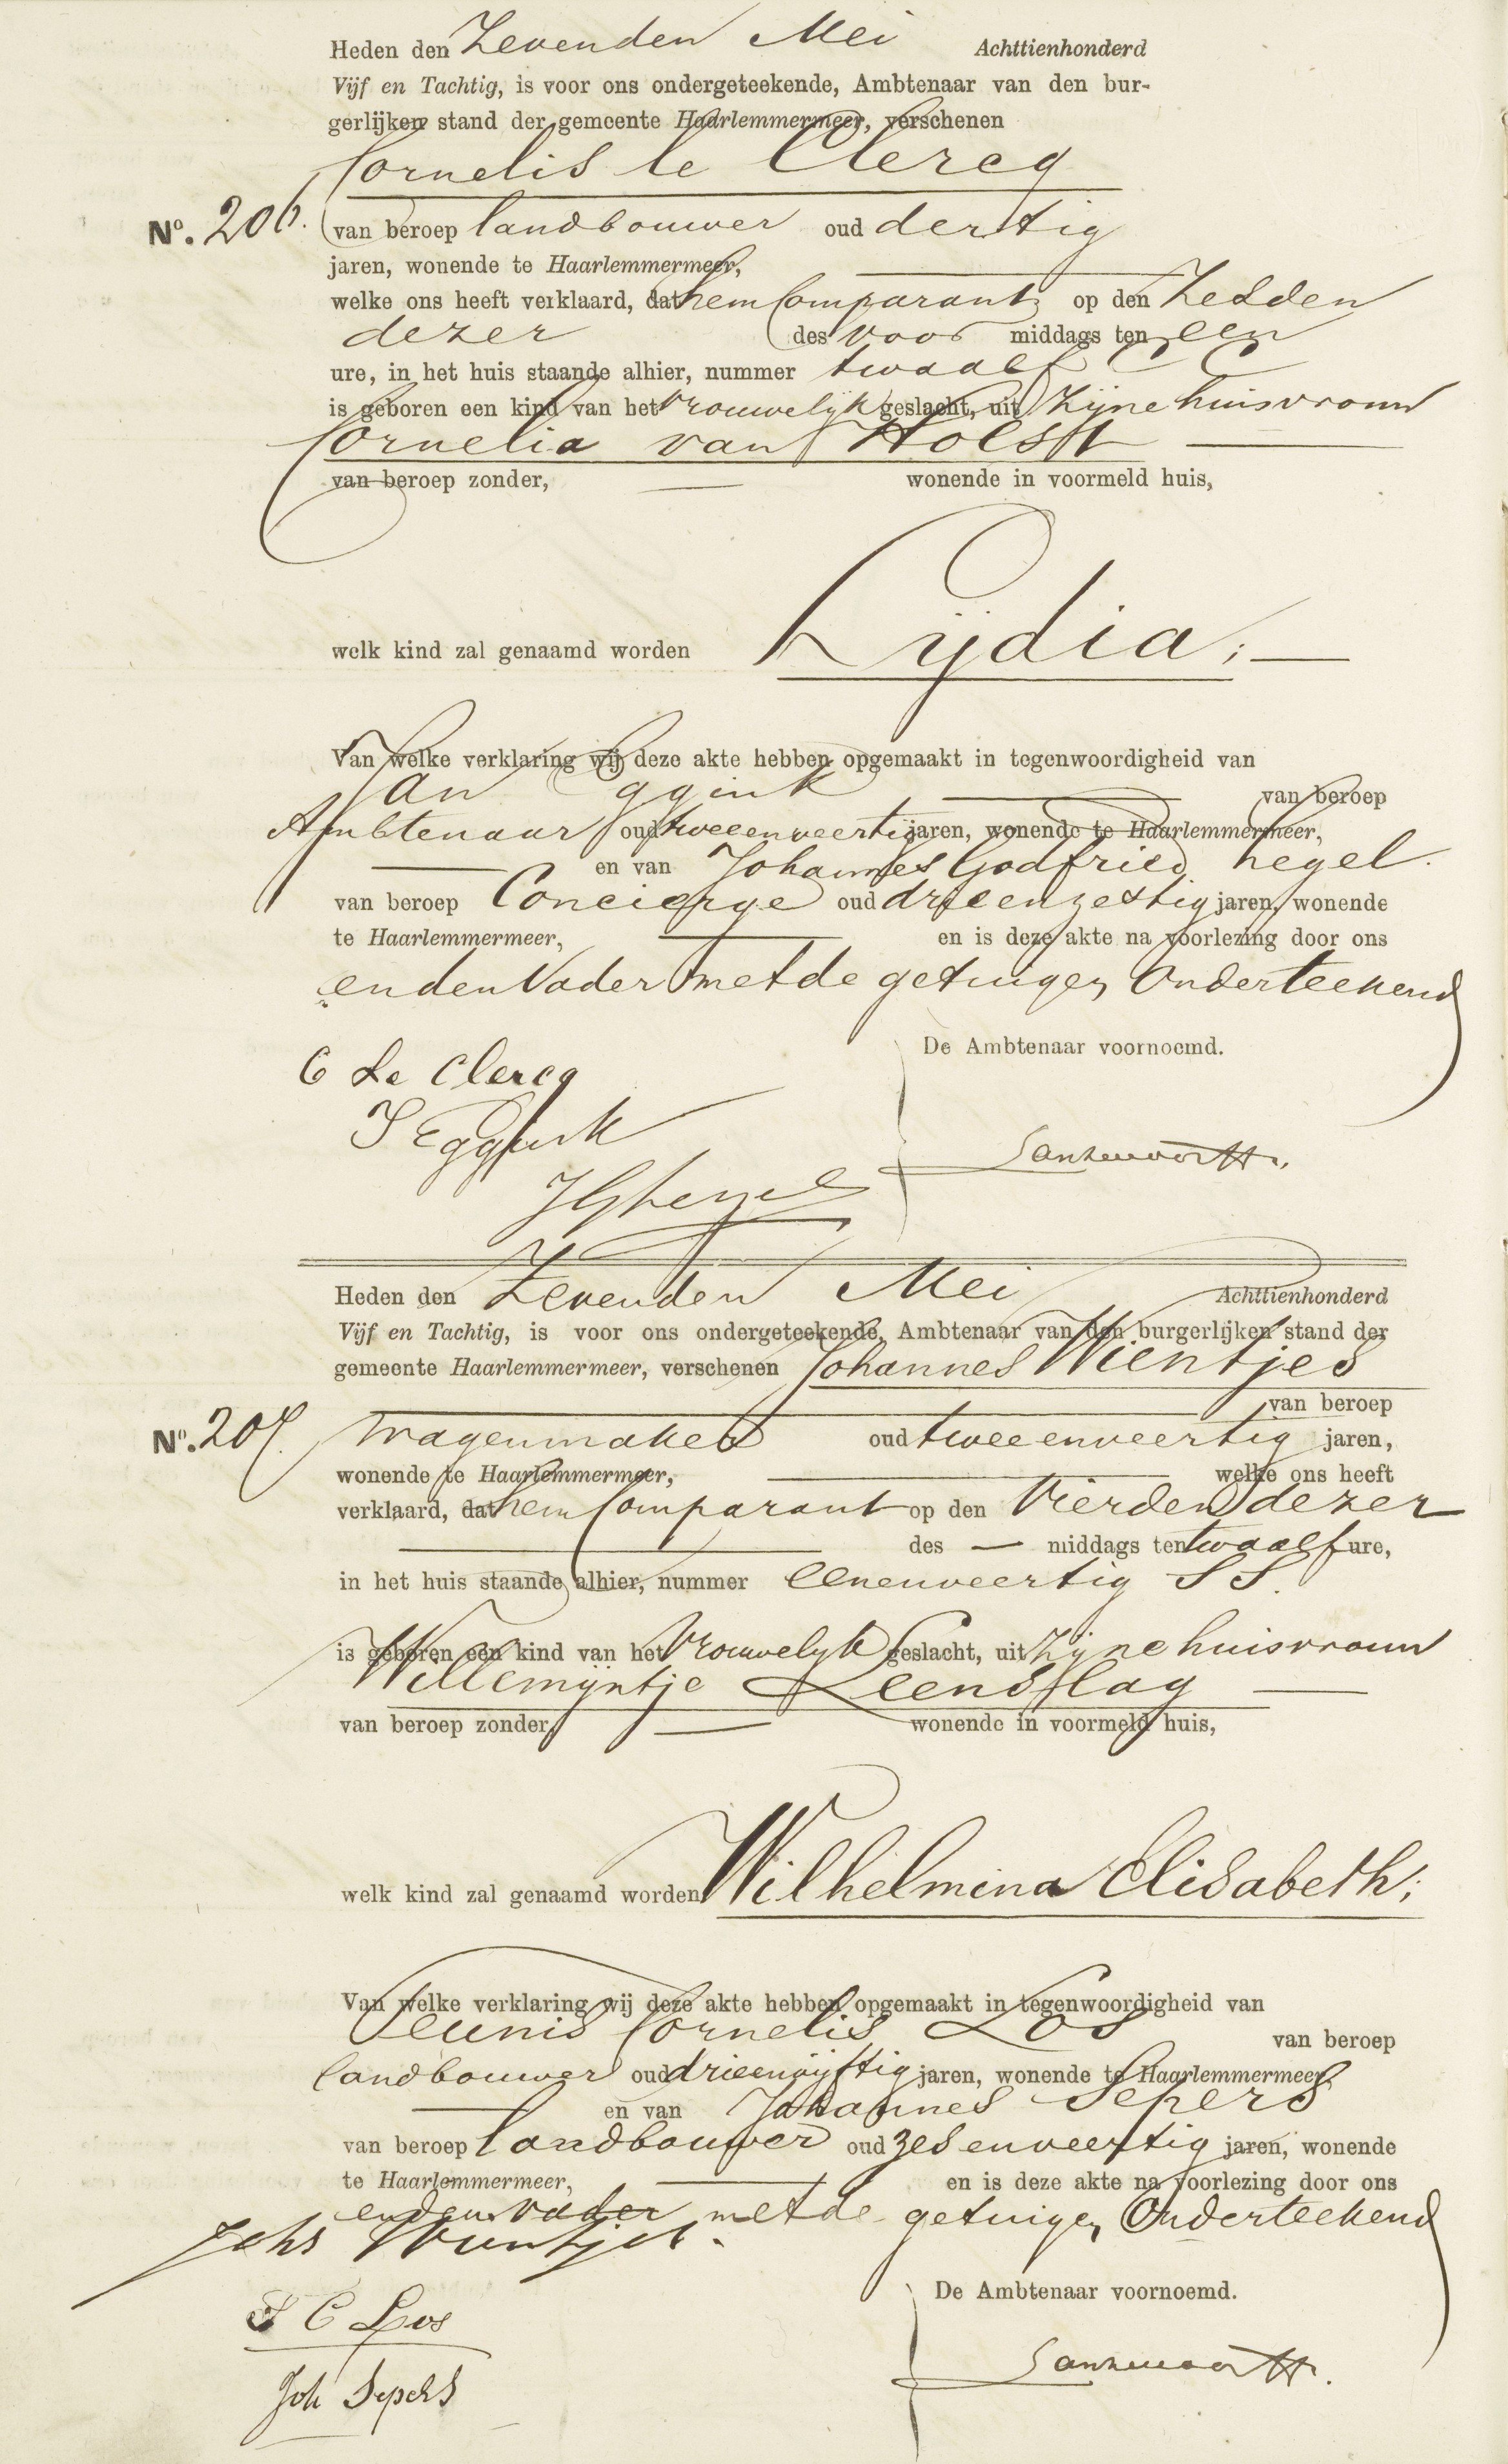 Heden den Zevenden Mei Achttienhonderd
Vijf en Tachtig, is voor ons ondergeteekende, Ambtenaar van den bur-
gerlijken stand der gemeente Haarlemmermeer, verschenen
Cornelis le Clercq
No. 206. van beroep landbouwer oud dertig
jaren, wonende te Haarlemmermeer,
welke ons heeft verklaard, dat hem Comparant op den Zesden
dezer des voor middags ten een
ure, in het huis staande alhier, nummer twaalf C C
is geboren een kind van het vrouwelijk geslacht, uit zijne huisvrouw
Cornelia van Holst
van beroep zonder, wonende in voormeld huis,
welk kind zal genaamd worden Lijdia;
Van welke verklaring wij deze akte hebben opgemaakt in tegenwoordigheid van
Jan Eggink van beroep
Ambtenaar oud tweeenveertig jaren, wonende te Haarlemmermeer,
en van Johannes Godfried Hegel.
van beroep Concierge oud drieenzestig jaren, wonende
te Haarlemmermeer, en is deze akte na voorlezing door ons
en den Vader met de getuigen Onderteekend
De Ambtenaar voornoemd.
C Le Clercq
J Eggink
JGHegel
Heden den Zevenden Mei Achttienhonderd
Vijf en Tachtig, is voor ons ondergeteekende, Ambtenaar van den burgerlijken stand der
gemeente Haarlemmermeer, verschenen Johannes Wientjes
van beroep
No. 207. wagenmaker oud tweeenveertig jaren,
wonende te Haarlemmermeer, welke ons heeft
verklaard, dat hem Comparant op den Vierden dezer
des — middags ten twaalf ure,
in het huis staande alhier, nummer eenenveertig S S.
is geboren een kind van het Vrouwelijk geslacht, uit zijne huisvrouw
Willemijntje Leenslag
van beroep zonder, wonende in voormeld huis,
welk kind zal genaamd worden Wilhelmina Elisabeth;
Van welke verklaring wij deze akte hebben opgemaakt in tegenwoordigheid van
Teunis Cornelis Los van beroep
landbouwer oud drieenvijftig jaren, wonende te Haarlemmermeer,
en van Johannes Sepers
van beroep landbouwer oud zesenveertig jaren, wonende
te Haarlemmermeer, en is deze akte na voorlezing door ons
en den vader met de getuigen Onderteekend
Johs Wientjes.
De Ambtenaar voornoemd.
T C Los
Joh Sepers